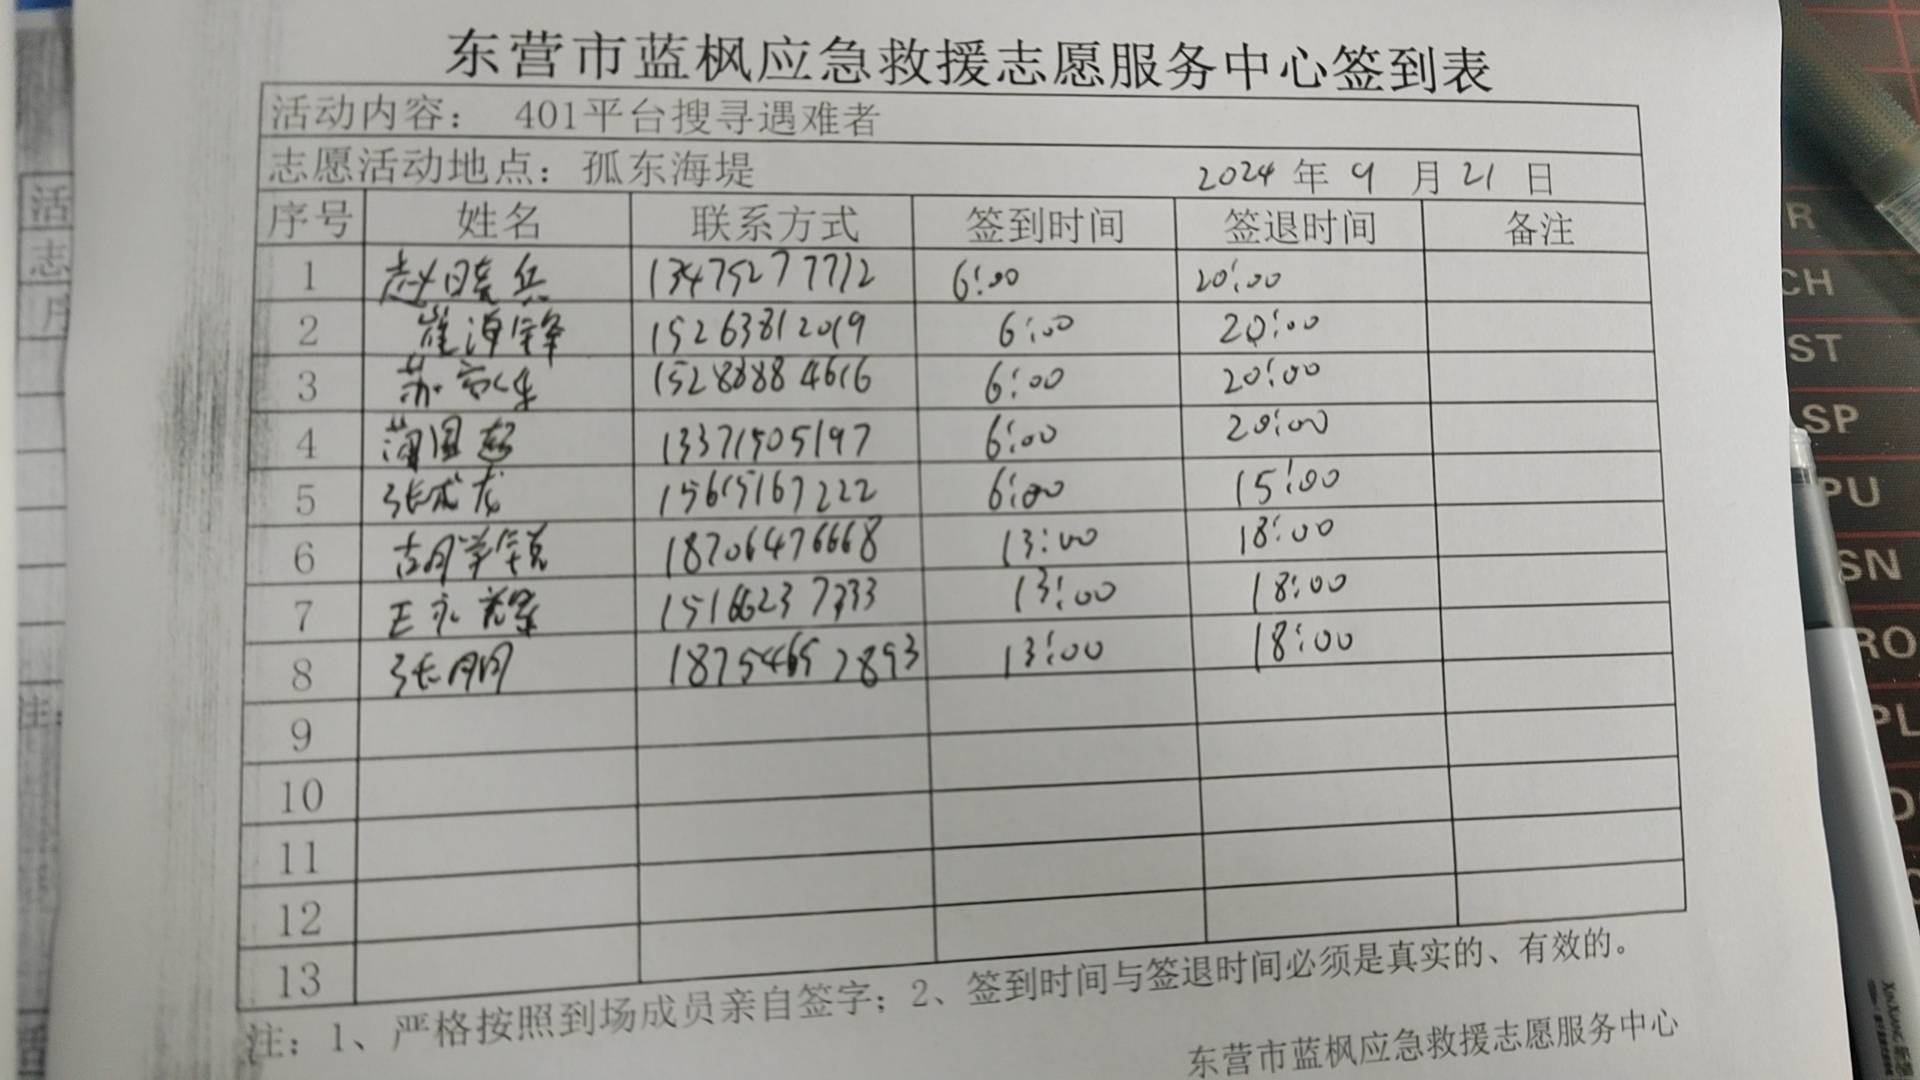 东营市蓝枫应急救援志愿服务中心签到表
活动内容: 401平台搜寻遇难者
志愿活动地点: 孤东海堤 2024 年 9 月 21 日
序号 姓名 联系方式 签到时间 签退时间 备注
1 赵晓兵 13475277712 6:00 20:00
2 崔海锋 15263812019 6:00 20:00
3 苏 15288884616 6:00 20:00
4 蒲国超 13371505197 6:00 20:00
5 张成龙 15615167222 6:00 15:00
6 胡学锐 18706476668 13:00 18:00
7 王永 15166237333 13:00 18:00
8 张朋 18754652893 13:00 18:00
9
10
11
12
13
注: 1、严格按照到场成员亲自签字; 2、签到时间与签退时间必须是真实的、有效的。
东营市蓝枫应急救援志愿服务中心
活
志
月
注:
活
R
CH
ST
SP
PU
SN
RO
PL